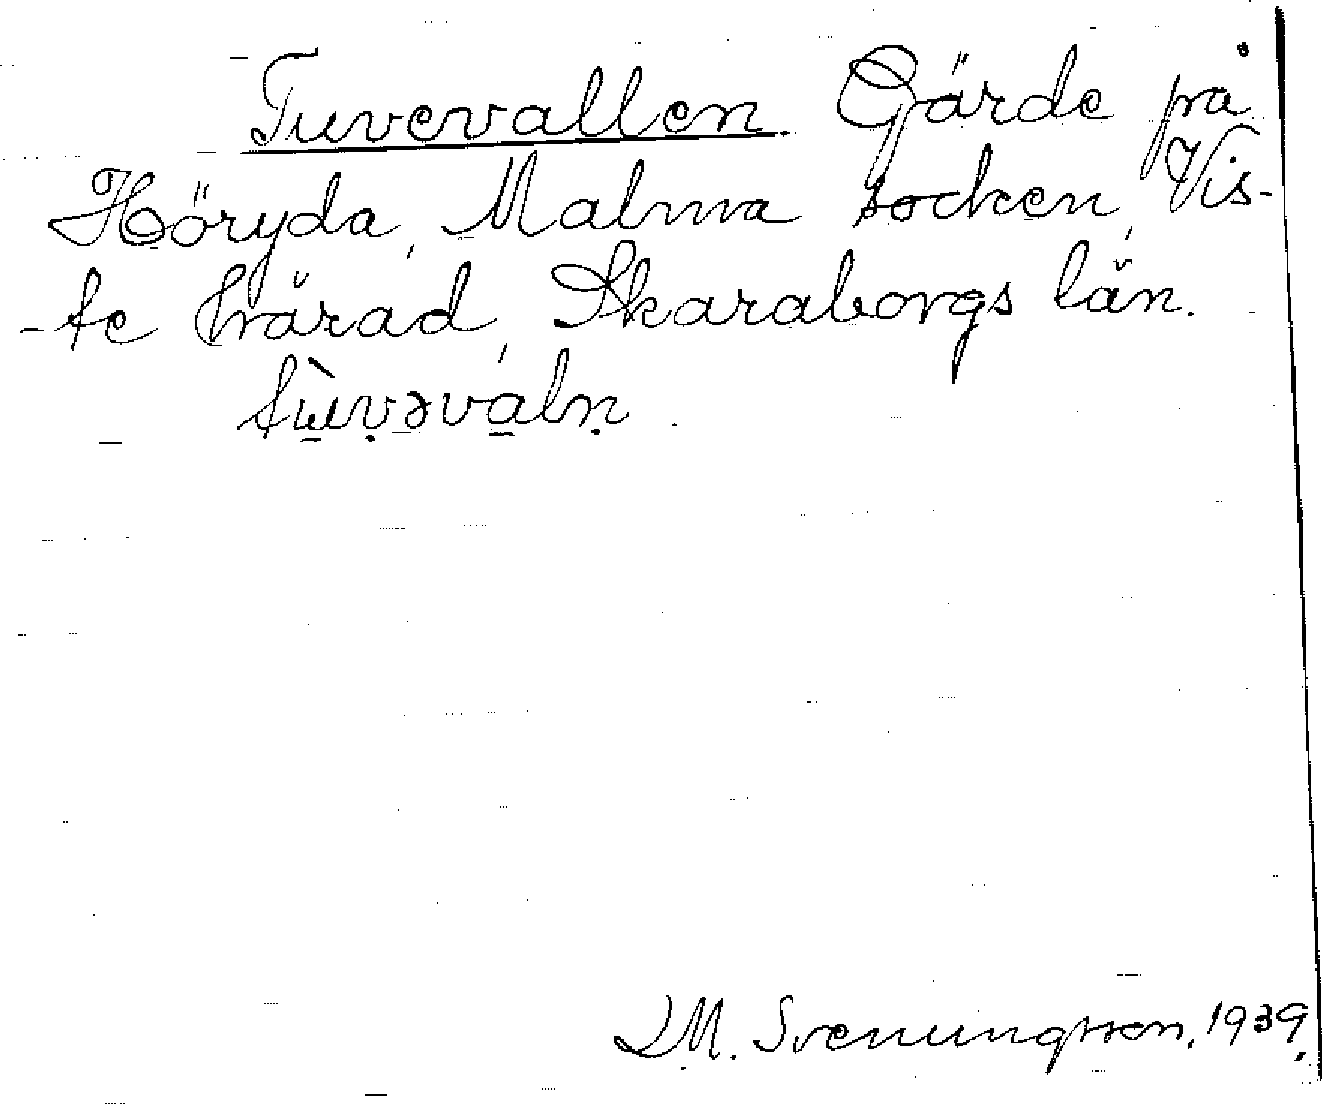 Tuvevallen. Gärde på
Höryda, Malma socken, Vis-
-te härad, Skaraborgs län.
tùvəvàln.
I.M. Svenungsson. 1939.